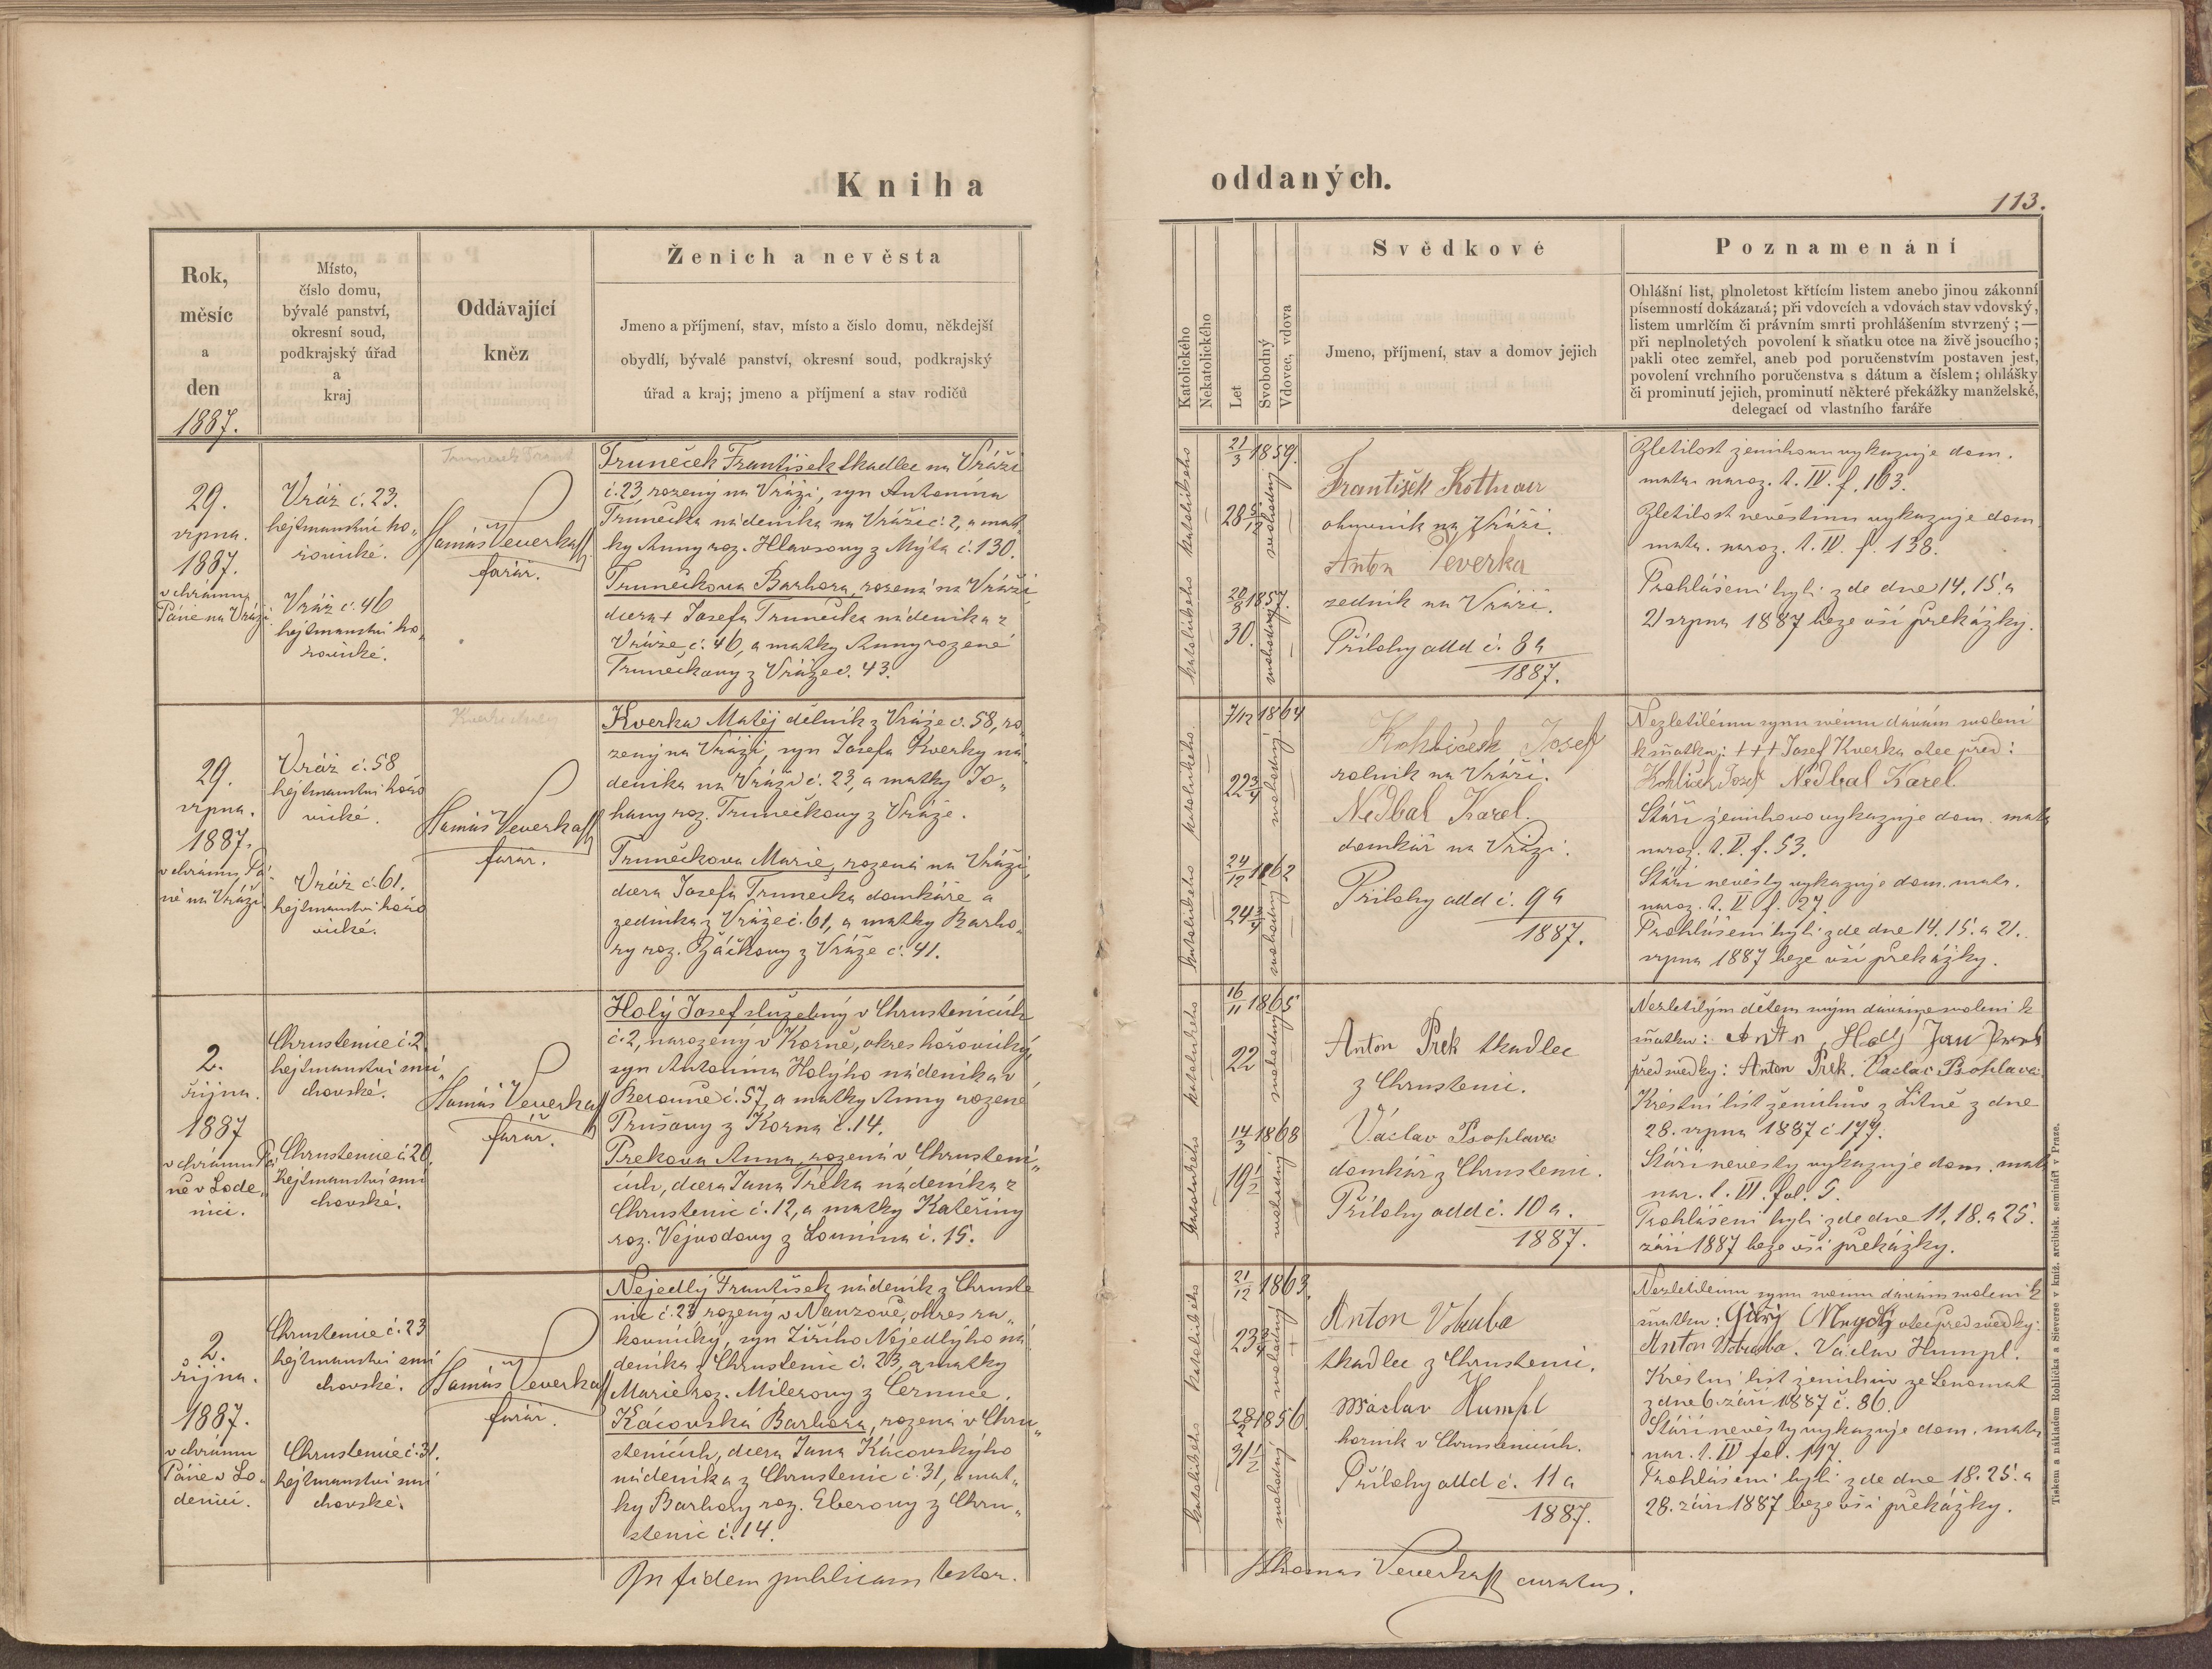 Kniha
oddaných.
113.
Rok,
měsíc
a
den
1887.
Místo,
číslo domu,
bývalé panství,
okresní soud,
podkrajský úřad
a
kraj
Oddávající
kněz
Ženich a nevěsta
Jmeno a příjmení, stav, místo a číslo domu, někdejší
obydlí, bývalé panství, okresní soud, podkrajský
úřad a kraj; jmeno a příjmení a stav rodičů
Katolického
Nekatolického
Let
Svobodný
Vdovec, vdova
Svědkové
Jmeno, příjmení, stav a domov jejich
Poznamenání
Ohlášní list, plnoletost křticím listem anebo jinou zákonní
písemností dokázaná; při vdovcích a vdovách stav vdovský,
listem umrlčím či právním smrti prohlášením stvrzený; —
při neplnoletých povolení k sňatku otce na živě jsoucího;
pakli otec zemřel, aneb pod poručenstvím postaven jest,
povolení vrchního poručenstva s dátum a číslem; ohlášky
či prominutí jejich, prominutí některé překážky manželské,
delegací od vlastního faráře
29.
srpna.
1887.
v chrámu
Páně na Vráži.
Vráž č. 23.
hejtmanství ho„
řovické.
Vráž č. 46
hejtmanství ho„
řovické.
Truneček Frant
Tomáš Veverka
farář.
Truneček František tkadlec na Vráži
č. 23, rozený na Vráži, syn Antonína
Trunečka nádeníka na Vráži č. 2, a mat
ky Anny roz. Hlavsovy z Mýta č. 130.
Trunečkova Barbora, rozená na Vráži
dcera † Josefa Trunečka nádeníka z
Vráže č. 46, a matky Anny rozené
Trunečkovy z Vráže č. 43.
katolického
katolického
21/3 1859.
28 5/12
20/8 1857.
30.
svobodný
svobodný
František Kottnauer
obuvník na Vráži.
Anton Veverka
zedník na Vráži.
Přílohy add č. 8a
1887.
Zletilost ženichovu vykazuje dom.
matr. naroz. t. IV. f. 163.
Zletilost nevěstinu vykazuje dom.
matr. naroz. t. IV. f. 138.
Prohlášeni byli zde dne 14. 15. a
21 srpna 1887 beze vší překážky.
29.
srpna.
1887.
v chrámu Pá„
ně na Vráži
Vráž č. 58
hejtmanství hořo
vické.
Vráž č. 61.
hejtmanství hořo
vické.
Tomáš Veverka
farář.
Kverka Matěj dělník z Vráže č. 58, ro
zený na Vráži, syn Josefa Kverky ná
deníka na Vráži č. 23, a matky Jo„
hany roz. Trunečkovy z Vráže.
Trunečkova Marie, rozená na Vráži,
dcera Josefa Trunečka domkáře a
zedníka z Vráže č. 61, a matky Barbo„
ry roz. Žáčkovy z Vráže č. 41.
katolického
katolického
7/12 1864
22 3/4
24/12 1862
24 3/4
svobodný
svobodný
Kohlíček Josef
rolník na Vráži.
Nedbal Karel.
domkář na Vráži.
Přílohy add č. 9a
1887.
Nezletilému synu svému dávám svolení
k sňatku: +++ Josef Kverka otec před:
Kohlíček Josef Nedbal Karel
Stáří ženichovo vykazuje dom. matr
naroz. t. V. f. 53.
Stáří nevěsty vykazuje dom. matr.
naroz. t. V. f. 27.
Prohlášeni byli zde dne 14. 15. a 21.
srpna 1887 beze vší překážky.
2.
října.
1887
v chrámu Pá
ně v Lode„
nici.
Chrustenice č. 2
hejtmanství smí„
chovské.
Chrustenice č. 20.
hejtmanství smí
chovské.
Tomáš Veverka
farář.
Holý Josef služebný v Chrustenicích
č. 2, narozený v Korně, okres hořovický,
syn Antonína Holýho nádeníka v
Berouně č. 57, a matky Anny rozené
Průšovy z Korna č. 14.
Prekova Anna, rozená v Chrusteni„
cích, dcera Jana Preka nádeníka z
Chrustenic č. 12, a matky Kateřiny
roz. Vejvodovy z Lounína č. 15.
katolického
katolického
16/11 1865
22
14/3 1868
19 1/2
svobodný
svobodný
Anton Prek tkadlec
z Chrustenic.
Václav Psohlavec
domkář z Chrustenic.
Přílohy add č. 10a.
1887.
Nezletilým dětem svým dáváme svolení k
sňatku: Antn Holý Jan Prek
před svědky: Anton Prek. Vaclav Psohlavec
Křestní list ženichův z Litně z dne
28. srpna 1887 č. 177.
Stáří nevěsty vykazuje dom. matr
nar. t. VI. fol. 5.
Prohlášeni byli zde dne 11. 18. a 25.
září 1887 beze vší překážky.
2.
října.
1887.
v chrámu
Páně v Lo„
denici.
Chrustenice č. 23
hejtmanství smí
chovské.
Chrustenice č. 31.
hejtmanství smí
chovské.
Tomáš Veverka
farář.
Nejedlý František nádeník z Chruste
nic č. 23, rozený v Nouzově, okres ra„
kovnický, syn Jiřího Nejedlýho ná
deníka z Chrustenic č. 23, a matky
Marie roz. Milerovy z Černuce.
Kácovská Barbora, rozená v Chru„
stenicích, dcera Jana Kácovskýho
nádeníka z Chrustenic č. 31, a mat„
ky Barbory roz. Eberovy z Chru„
stenic č. 14.
katolického
katolického
21/12 1863.
23 3/4
28/2 1856
31 1/2
svobodný
svobodný
Anton Vobuba
tkadlec z Chrustenic.
Václav Humpl
horník v Chrustenicích.
Přílohy add č. 11a
1887.
Nezletilému synu svému dávám svolení k
sňatku: otec před svědky:
Anton Vobuba. Václav Humpl.
Křestní list ženichův ze Senomat
z dne 6. září 1887 č. 86.
Stáří nevěsty vykazuje dom. matr
nar. t. IV fol. 117.
Prohlášeni byli zde dne 18. 25. a
28. září 1887 beze vší překážky.
In fidem publicam testor.
Thomas Veverka curatus.
Tiskem a nákladem Rohlíčka a Sieverse v kníž. arcibisk. semináři v Praze.